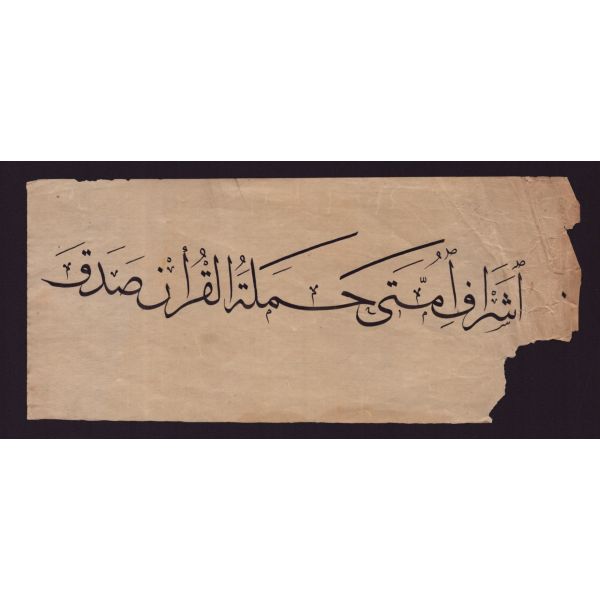 اَشْرَافُ اُمَّتٖى حَمَلَةُ الْقُرْأٰنِ صَدَقَ